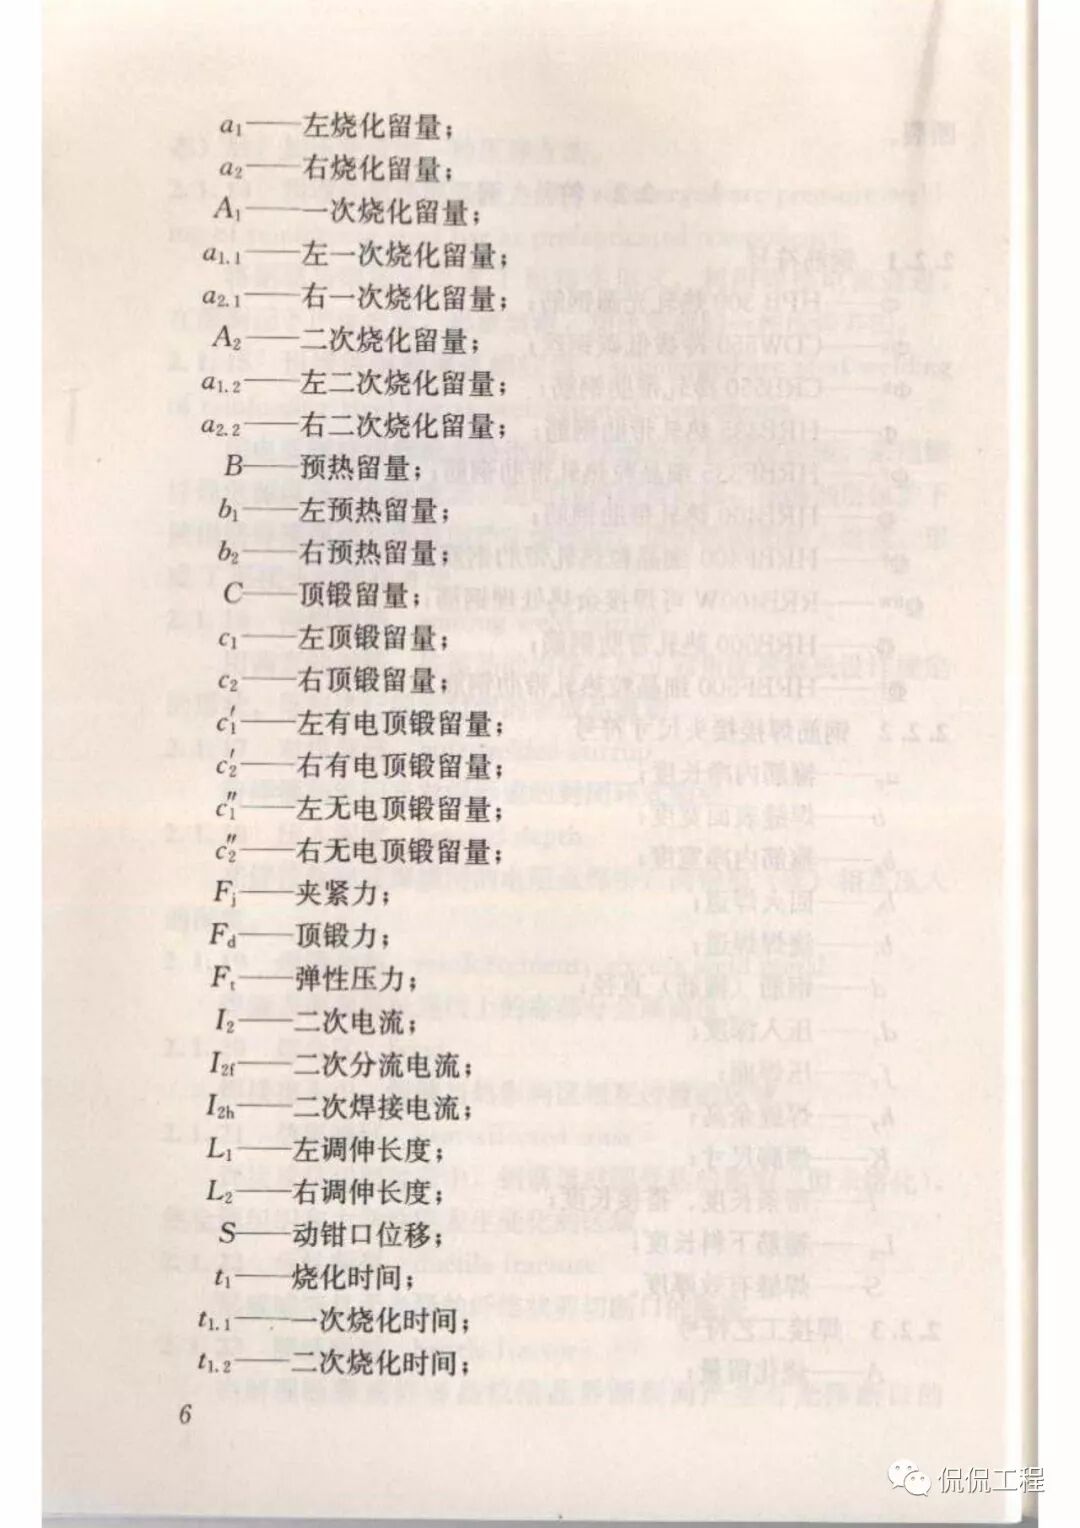 a₁——左烧化留量；
a₂——右烧化留量；
A₁——一次烧化留量；
a₁.₁——左一次烧化留量；
a₂.₁——右一次烧化留量；
A₂——二次烧化留量；
a₁.₂——左二次烧化留量；
a₂.₂——右二次烧化留量；
B——预热留量；
b₁——左预热留量；
b₂——右预热留量；
C——顶锻留量；
c₁——左顶锻留量；
c₂——右顶锻留量；
c₁′——左有电顶锻留量；
c₂′——右有电顶锻留量；
c₁″——左无电顶锻留量；
c₂″——右无电顶锻留量；
Fj——夹紧力；
Fd——顶锻力；
Ft——弹性压力；
I₂——二次电流；
I₂f——二次分流电流；
I₂h——二次焊接电流；
L₁——左调伸长度；
L₂——右调伸长度；
S——动钳口位移；
t₁——烧化时间；
t₁.₁——一次烧化时间；
t₁.₂——二次烧化时间；
6
侃侃工程